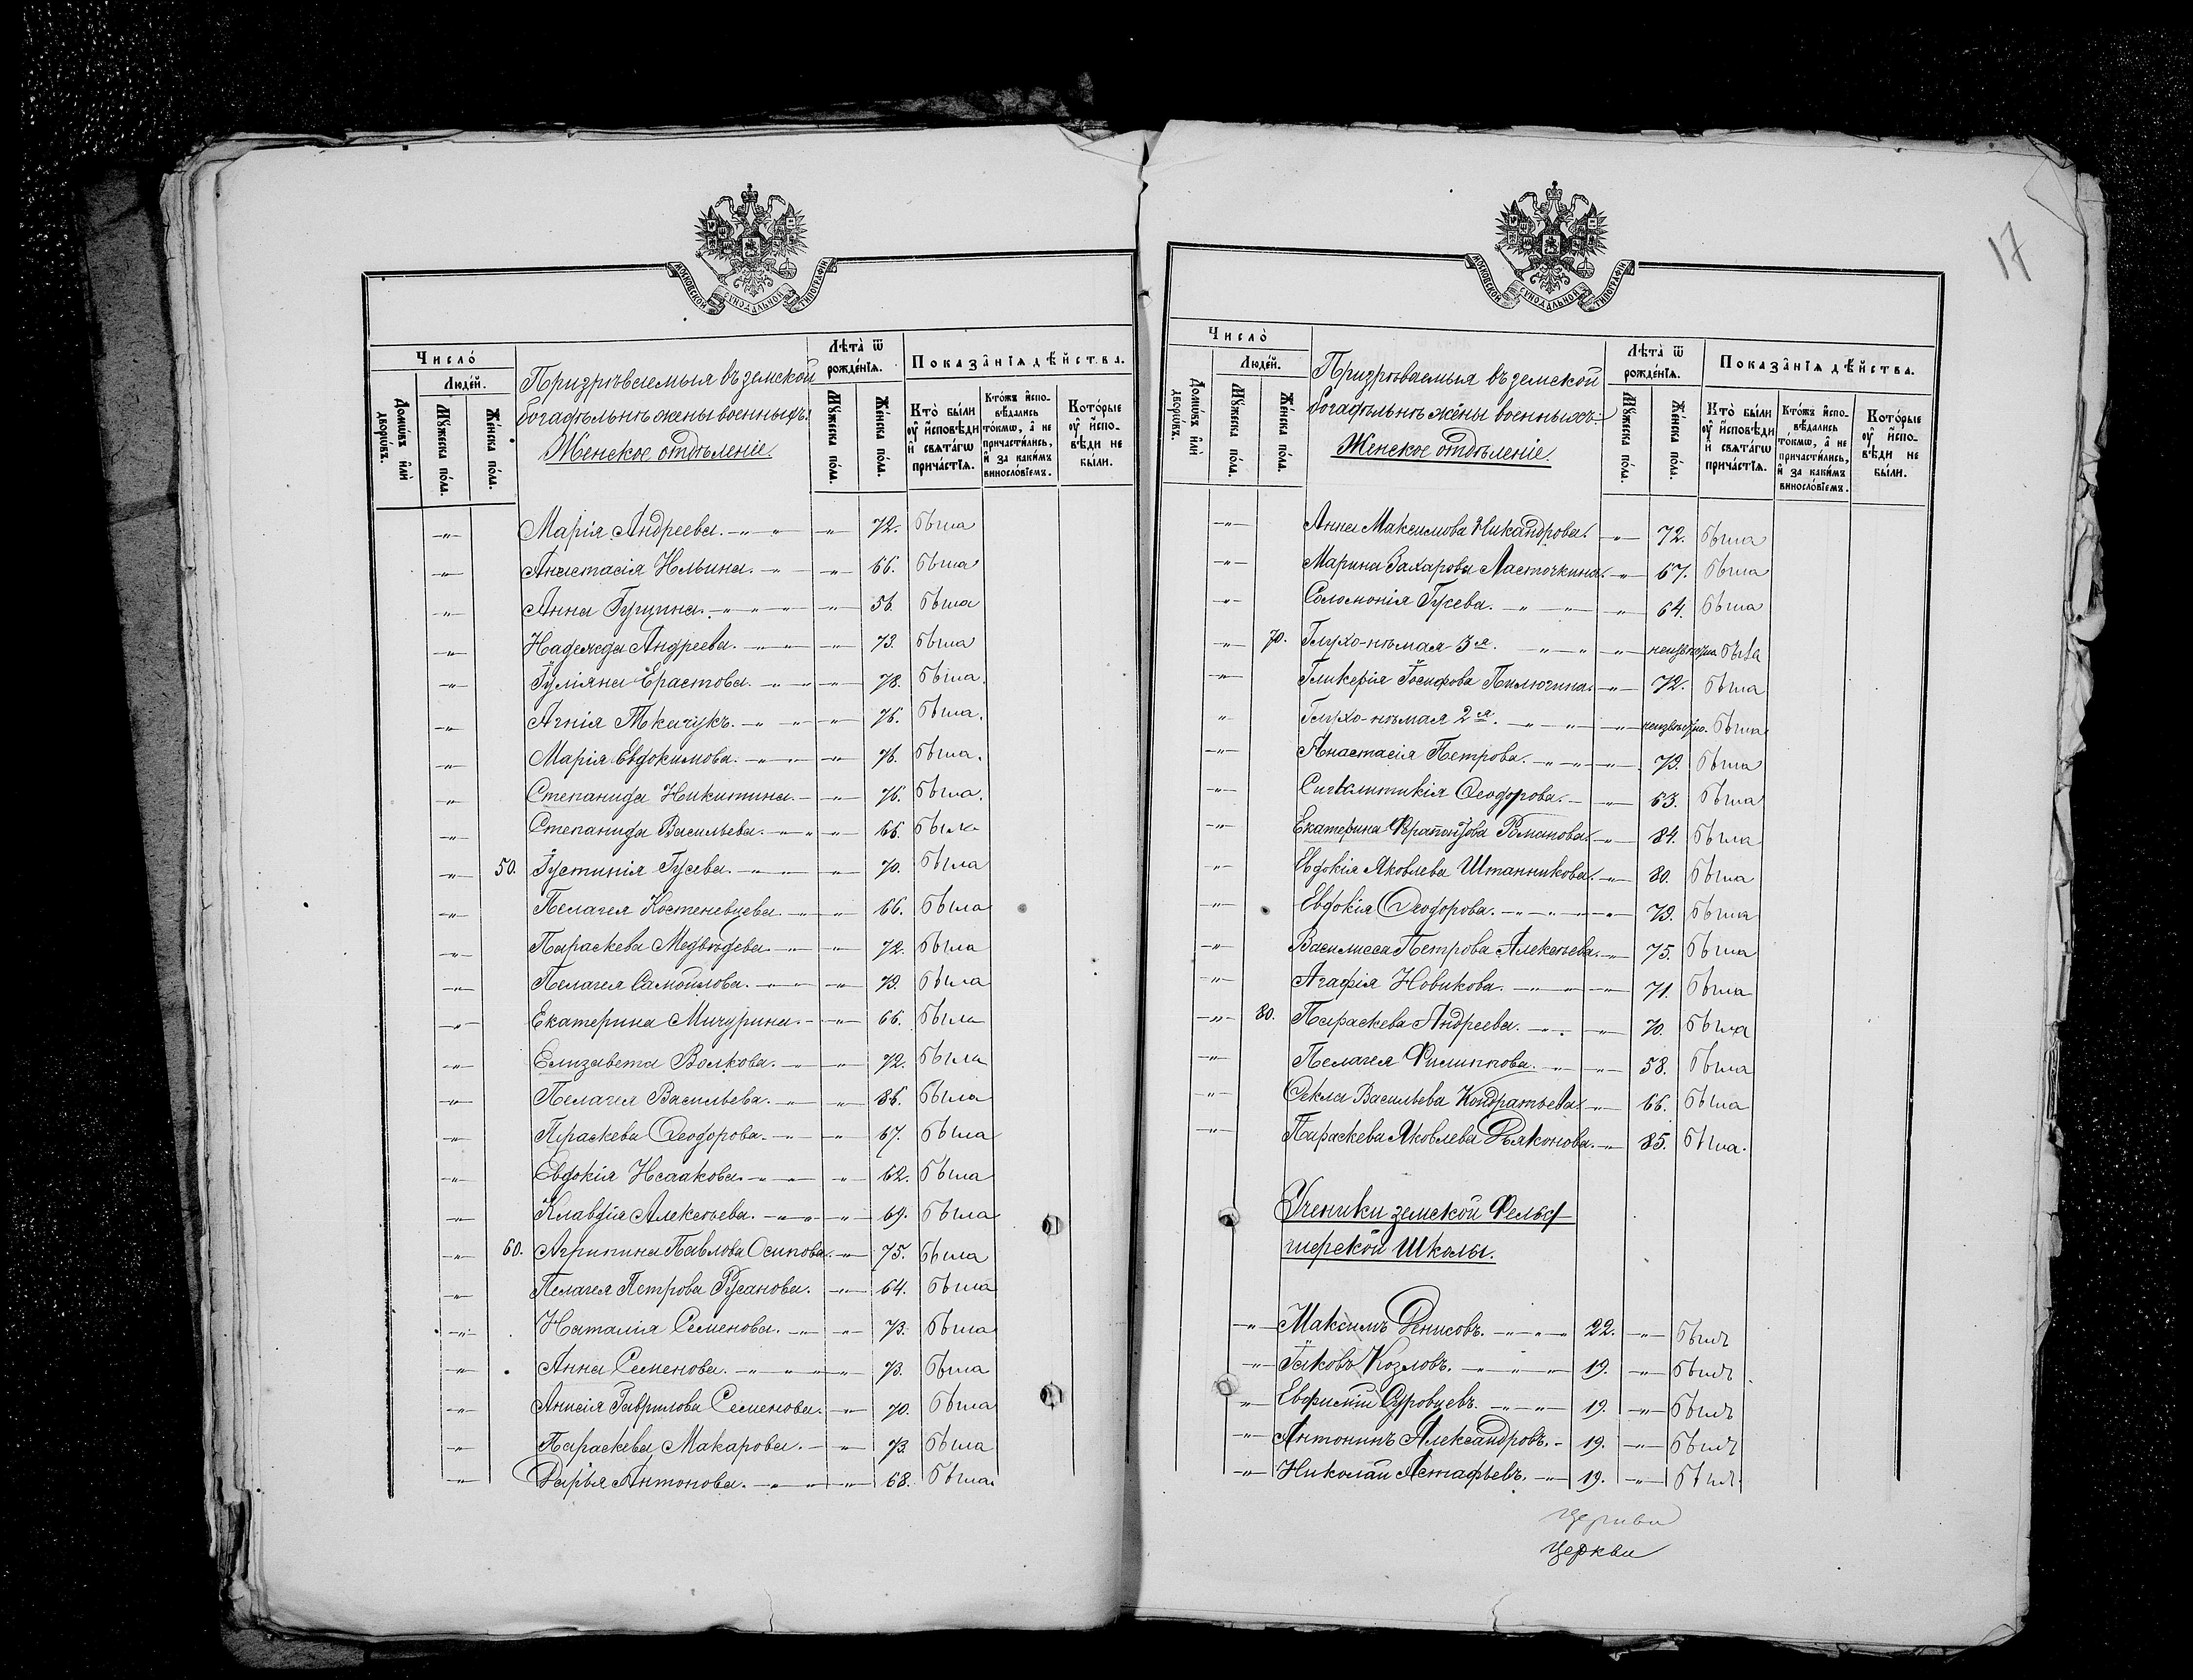 МОСКОВСКОЙ СѴНОДАЛЬНОЙ ТИПОГРАФІИ
Число̀
Люде́й.
Домѡ́въ и҆лѝ дворѡ́въ.
Мꙋ́жеска по́ла.
Же́нска по́ла.
Призрѣваемыя въ земской
богадѣльнѣ жены военныхъ:
Женское отдѣленіе.
Лѣ́та ѿ рожде́нїѧ.
Мꙋ́жеска по́ла.
Же́нска по́ла.
Показа̑нїѧ дѣ́йства.
Кто̀ бы́ли ᲂу҆ и҆сповѣди и҆ свѧта́гѡ прича́стїѧ.
Кто́жъ и҆сповѣдались то́кмѡ, а҆ не причасти́лись, и҆ за каки́мъ виносло́вїемъ.
Кото́рые ᲂу҆ и҆сповѣди не бы́ли.
–„– Марія Андреева. –„– –„– –„– 72. была
–„– Анастасія Ильина. –„– –„– 66. была
–„– Анна Гущина. –„– –„– –„– 56. была
–„– Надежда Андреева. –„– –„– 73. была
–„– Іуліяна Ерастова. –„– –„– 78. была.
–„– Агнія Ткачукъ. –„– –„– –„– 76. была.
–„– Марія Евдокимова. –„– –„– 76. была.
–„– Степанида Никитина. – –„– 76. была.
–„– Степанида Васильева. –„– –„– 66. была
–„– 50. Іустинія Гусева. –„– –„– 70. была
–„– Пелагея Костеневцева. –„– –„– 66. была
–„– Параскева Медвѣдева. –„– –„– 72. была
–„– Пелагея Самойлова. –„– –„– 73. была
–„– Екатерина Мичурина. – –„– 66. была
–„– Елизавета Волкова. –„– –„– 72. была
–„– Пелагея Васильева. –„– –„– 86. была
–„– Параскева Ѳеодорова. –„– –„– 67. была
–„– Евдокія Исаакова. –„– –„– 62. была
–„– Клавдія Алексѣева. –„– –„– 69. была
–„– 60. Агрипина Павлова Осипова. –„– 75. была
–„– Пелагея Петрова Русанова. –„– 64. была
–„– Наталія Семенова. –„– –„– 73. была
–„– Анна Семенова. –„– –„– –„– 73. была
–„– Анисія Гаврилова Семенова. –„– 70. была
–„– Параскева Макарова. – –„– 73. была
–„– Дарья Антонова. –„– –„– –„– 68. была.
17
МОСКОВСКОЙ СѴНОДАЛЬНОЙ ТИПОГРАФІИ
Число̀
Люде́й.
Домѡ́въ и҆лѝ дворѡ́въ.
Мꙋ́жеска по́ла.
Же́нска по́ла.
Призрѣваемыя въ земской
богадѣльнѣ жёны военныхъ:
Женское отдѣленіе.
Лѣ́та ѿ рожде́нїѧ.
Мꙋ́жеска по́ла.
Же́нска по́ла.
Показа̑нїѧ дѣ́йства.
Кто̀ бы́ли ᲂу҆ и҆сповѣди и҆ свѧта́гѡ прича́стїѧ.
Кто́жъ и҆сповѣдались то́кмѡ, а҆ не причасти́лись, и҆ за каки́мъ виносло́вїемъ.
Кото́рые ᲂу҆ и҆сповѣди не бы́ли.
–„– Анна Максимова Никандрова. –„– 72. была
–„– Марина Захарова Ласточкина. –„– 67. была
–„– Соломонія Гусева. –„– –„– –„– 64. была
–„– 70. Глухо-нѣмая 3я. –„– –„– –„– неизвѣстно. была
–„– Гликерія Іосифова Пилюгина. –„– 72. была
–„– Глухо-нѣмая 2я. –„– –„– –„– неизвѣстно. была
–„– Анастасія Петрова. –„– –„– 73. была
–„– Сигклитикія Ѳеодорова. – –„– 63. была
–„– Екатерина Ферапонтова Романова. –„– 84. была
–„– Евдокія Яковлева Штанникова. –„– 80. была
–„– Евдокія Ѳеодорова. –„– –„– –„– 73. была
–„– Василисса Петрова Алексѣева. –„– 75. была
–„– Агафія Новикова. –„– –„– –„– 71. была
–„– 80. Параскева Андреева. –„– –„– 70. была
–„– Пелагея Филиппова. –„– –„– 58. была
–„– Ѳекла Васильева Кондратьева. –„– 66. была
–„– Параскева Яковлева Дьяконова. –„– 85. была.
Ученики земской Фельд-
шерской Школы.
–„– Максимъ Денисовъ. –„– –„– 22. –„– былъ
–„– Іаковъ Козловъ. –„– –„– –„– 19. –„– былъ
–„– Евфимій Суровцевъ. –„– –„– 19. –„– былъ
–„– Антонинъ Александровъ. – 19. –„– былъ
–„– Николай Астафьевъ. –„– 19. –„– былъ.
Церкви
Церкви